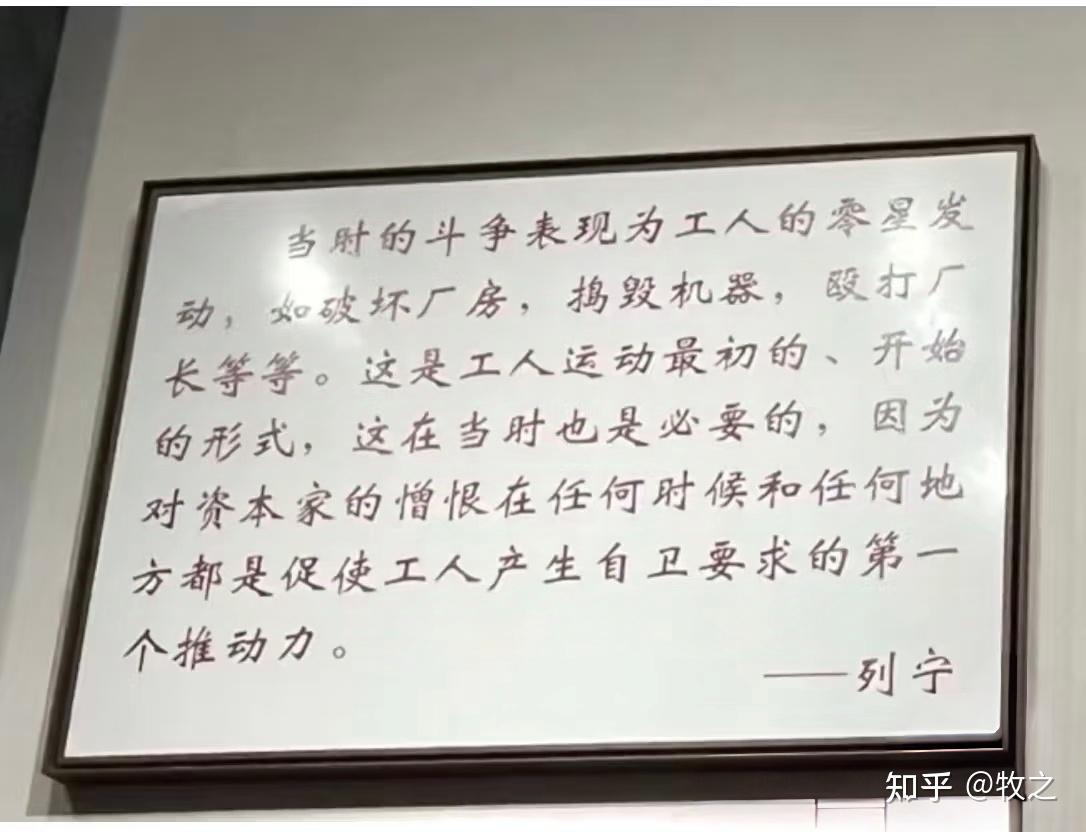 当时的斗争表现为工人的零星发
动，如破坏厂房，捣毁机器，殴打厂
长等等。这是工人运动最初的、开始
的形式，这在当时也是必要的，因为
对资本家的憎恨在任何时候和任何地
方都是促使工人产生自卫要求的第一
个推动力。
——列宁
知乎 @牧之